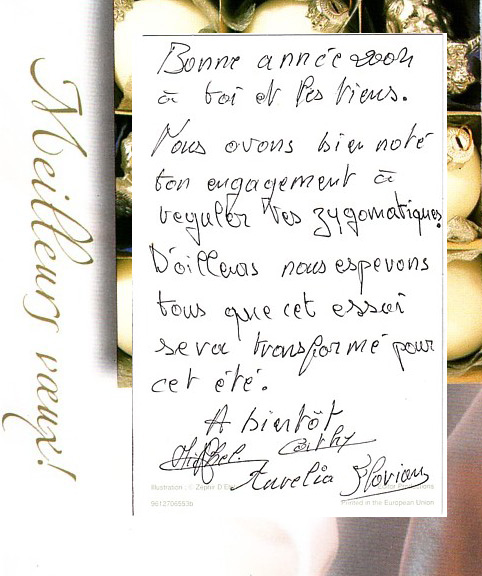 Meilleurs vœux!
Bonne année 2004
à toi et les tiens.
Nous avons bien noté
ton engagement à
reguler tes zygomatiques.
D'ailleurs nous esperons
tous que cet essai
sera transformé pour
cet été.
A bientôt
Michel Cathy
Aurelia Florian
Illustration : © Zephir D
9612706553b
Printed in the European Union